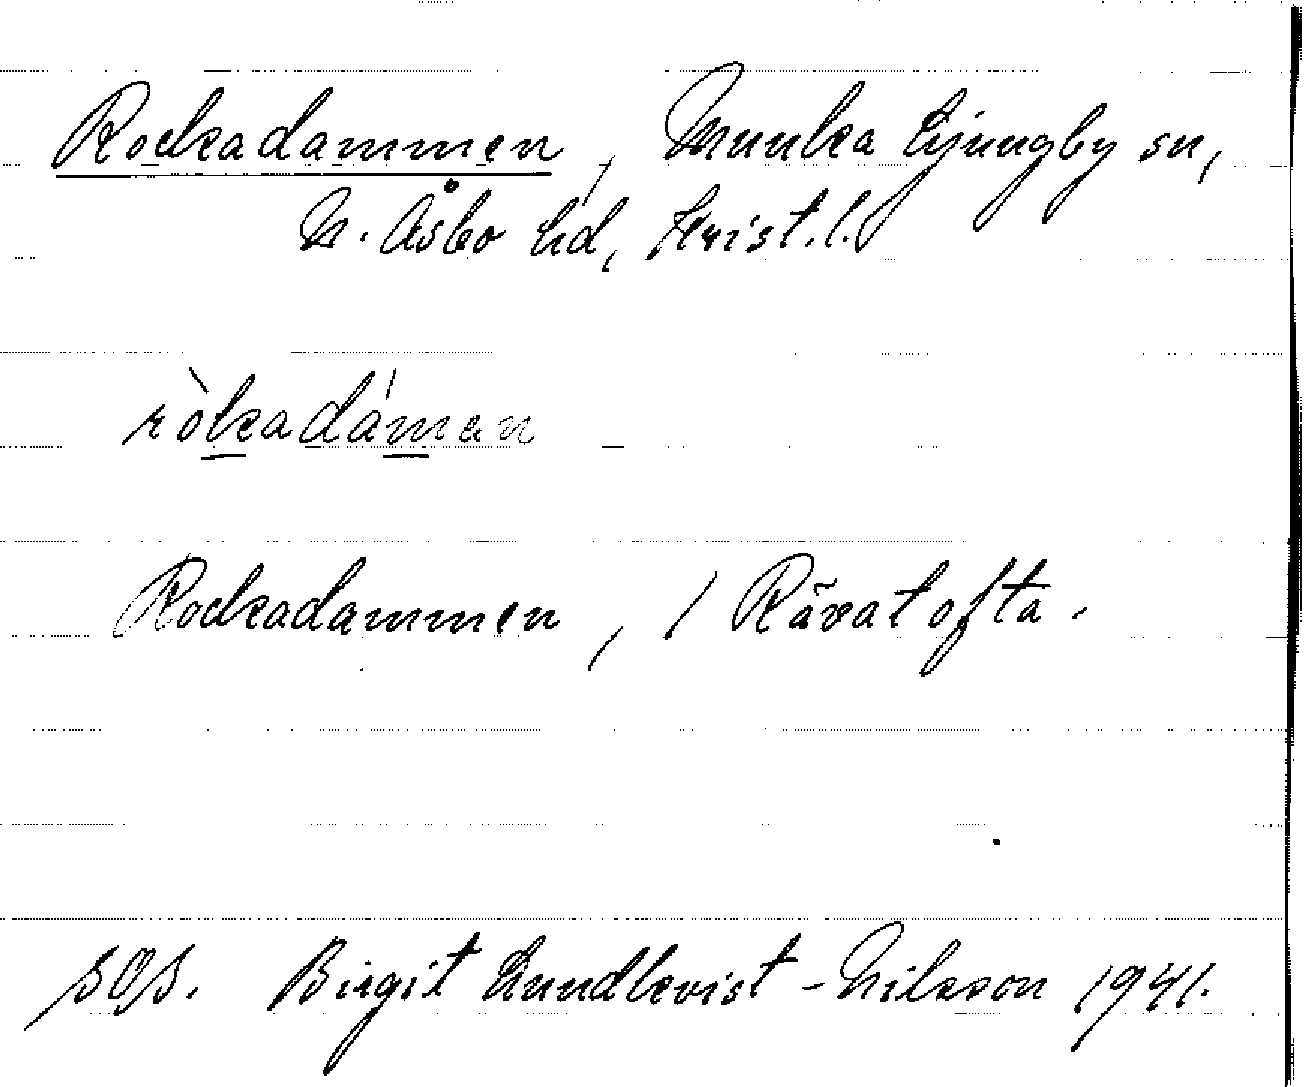 Rockadammen, Munka Ljungby sn,
N. Åsbo hd, Krist. l.
ròkadámen
Rockadammen, / Rävatofta.
sOs. Birgit Lundkvist-Nilsson 1941.